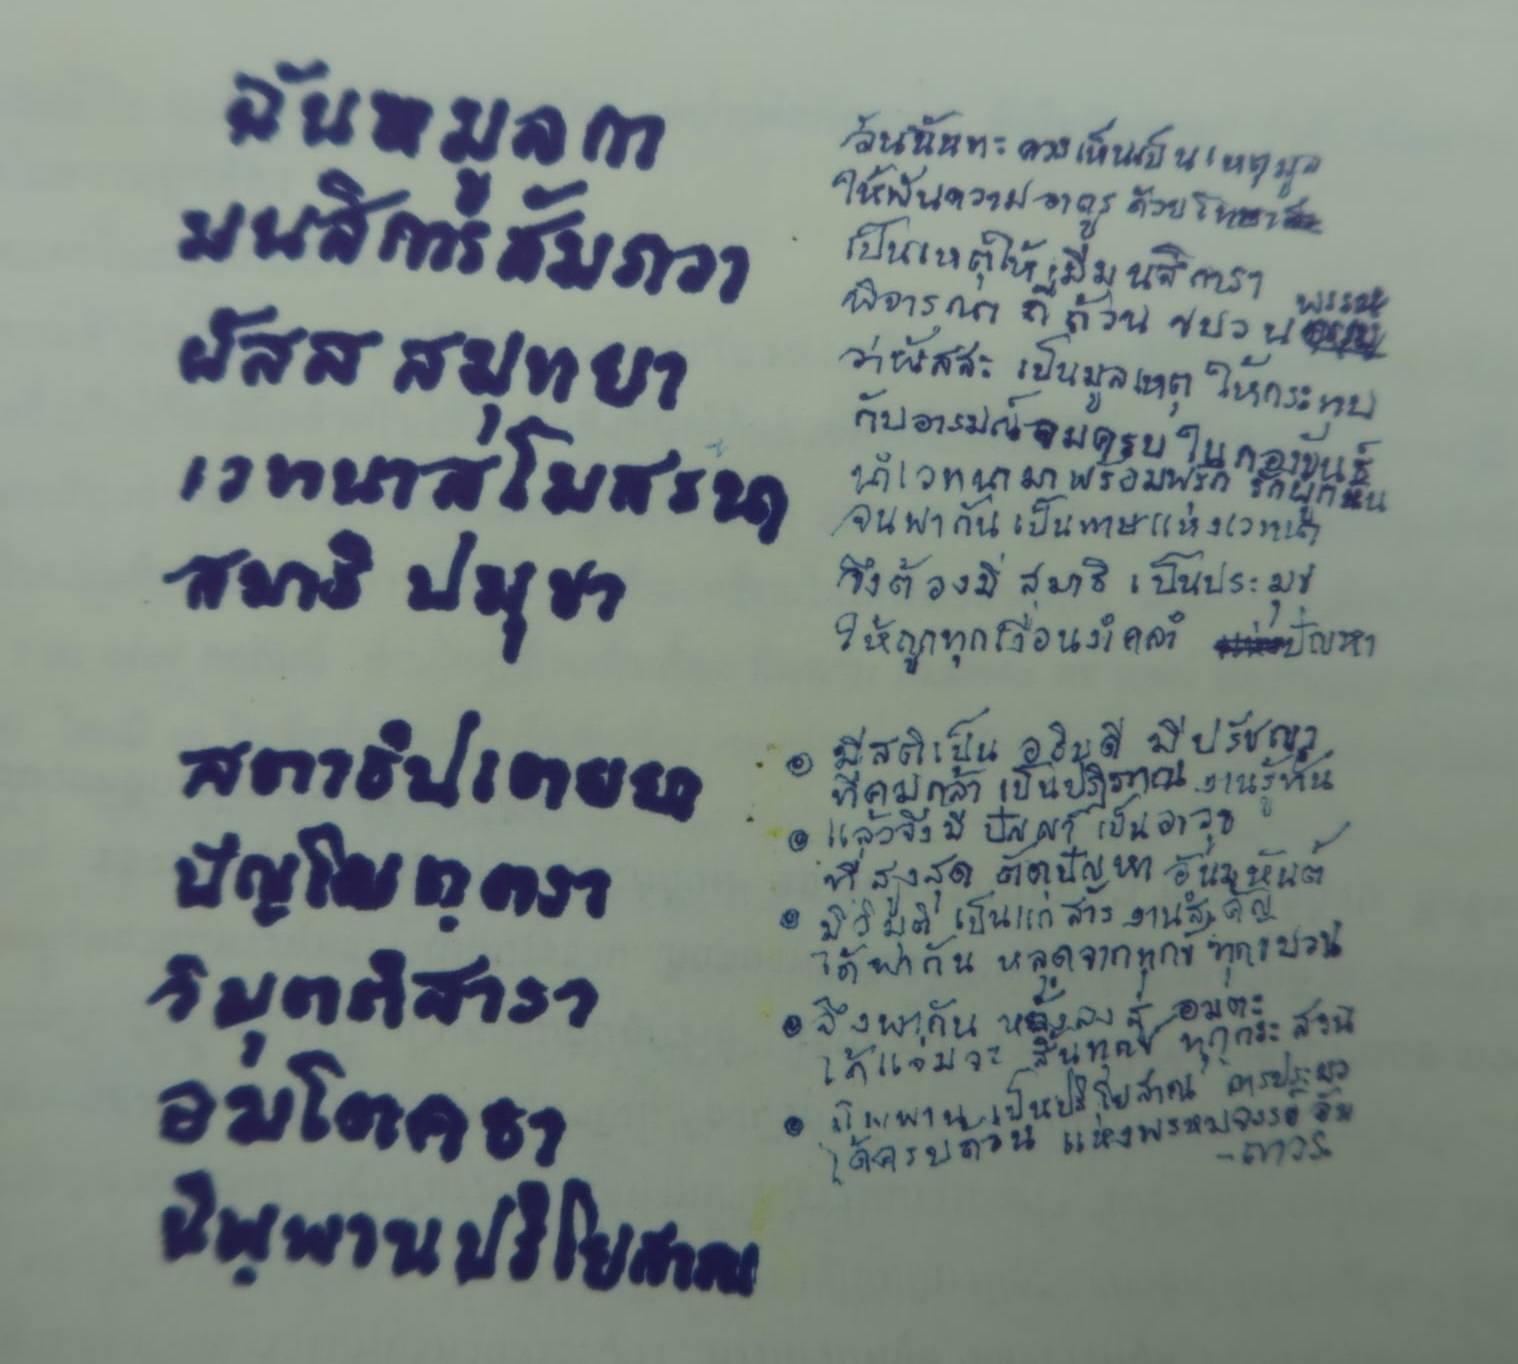 ฉันทมูลกา
มนสิการสัมภวา
ผัสส สมุทยา
เวทนาสโมสรณา
สมาธิ ปมุขา
สตาธิปเตยยา
ปัญโญตฺตรา
วิมุตติสารา
อมโตคธา
นิพฺพานปริโยสาณ
ฉันทะ ควรเห็นเป็นเหตุมูล
ให้พ้นความอาดูร ด้วย
เป็นเหตุให้มีมนสิการา
พิจารณา ถี่ถ้วน ขบวน พรรณ
ว่าผัสสะ เป็นมูลเหตุ ให้กระทบ
กับอารมณ์ ครบ ในกองขันธ์
นำเวทนามาพร้อมพรัก รักผูกพัน
จนพากัน เป็นทาสแห่งเวทนา
จึงต้องมี สมาธิ เป็นประมุข
ให้ถูกทุกเงื่อนงำ ปัญหา
มีสติเป็น อธิบดี มีปรัชญา
ที่คมกล้า เป็นปฏิภาณ งานรู้ทัน
แล้วจึงมี ปัญญา เป็นอาวุธ
ที่สูงสุด ตัดปัญหา อันมหันต์
มีวิมุติ เป็นแก่นสาร งานสำคัญ
ได้พากัน หลุดจากทุกข์ ทุกขบวน
จึงพากัน หยั่งลงสู่ อมตะ
ได้ สิ้นทุกข์ ทุกกระ
นิพพาน เป็นปริโยสาณ
ได้ครบถ้วน แห่งพรหมจรรย์
- ถาวร